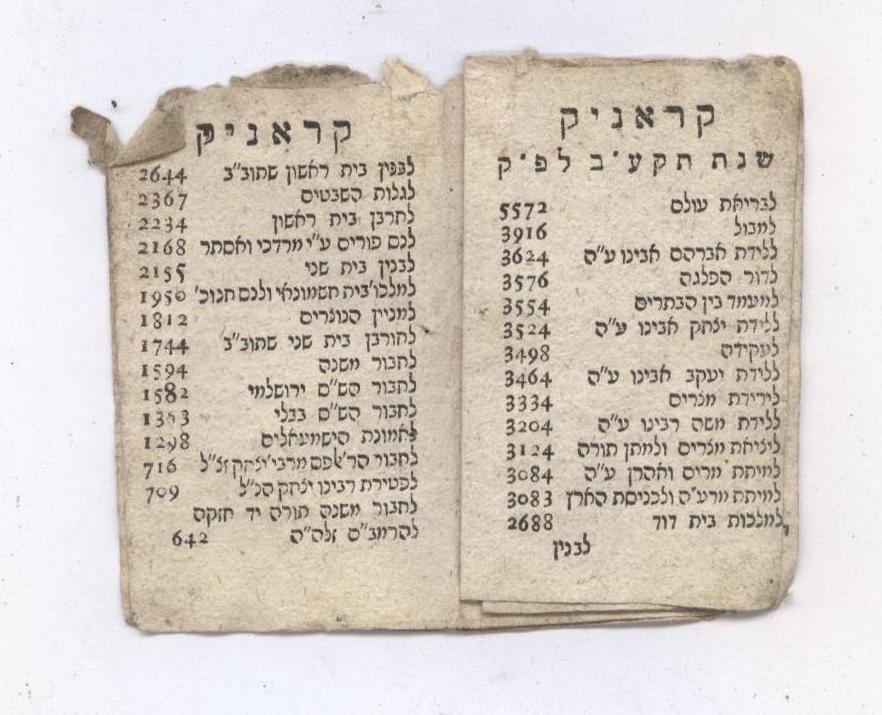 קראניק
שנת תקע״ב לפ״ק
לבריאת עולם 5572
למבול 3916
ללידת אברהם אבינו ע״ה 3624
לדור הפלגה 3576
למעמד בין הבתרים 3554
ללידת יצחק אבינו ע״ה 3524
לעקידה 3498
ללידת יעקב אבינו ע״ה 3464
לירידת מצרים 3334
ללידת משה רבינו ע״ה 3204
ליציאת מצרים ולמתן תורה 3124
למיתת מרים ואהרן ע״ה 3084
למיתת מרע״ה ולכניסת הארץ 3083
למלכות בית דוד 2688
לבנין
קראניק
לבנין בית ראשון שתוב״ב 2644
לגלות השבטים 2367
לחרבן בית ראשון 2234
לנס פורים ע״י מרדכי ואסתר 2168
לבנין בית שני 2155
למלכו׳ בית חשמונאי ולנס חנוכ׳ 1950
למניין הנוצרים 1812
לחורבן בית שני שתוב״ב 1744
לחבור משנה 1594
לחבור הש״ס ירושלמי 1582
לחבור הש״ס בבלי
לאמונת הישמעאלים 1298
לחבור הר׳ אלפס מרבי יצחק זצ״ל 716
לפטירת רבינו יצחק הנ״ל 709
לחבור משנה תורה יד חזקה
להרמב״ם זלה״ה 642